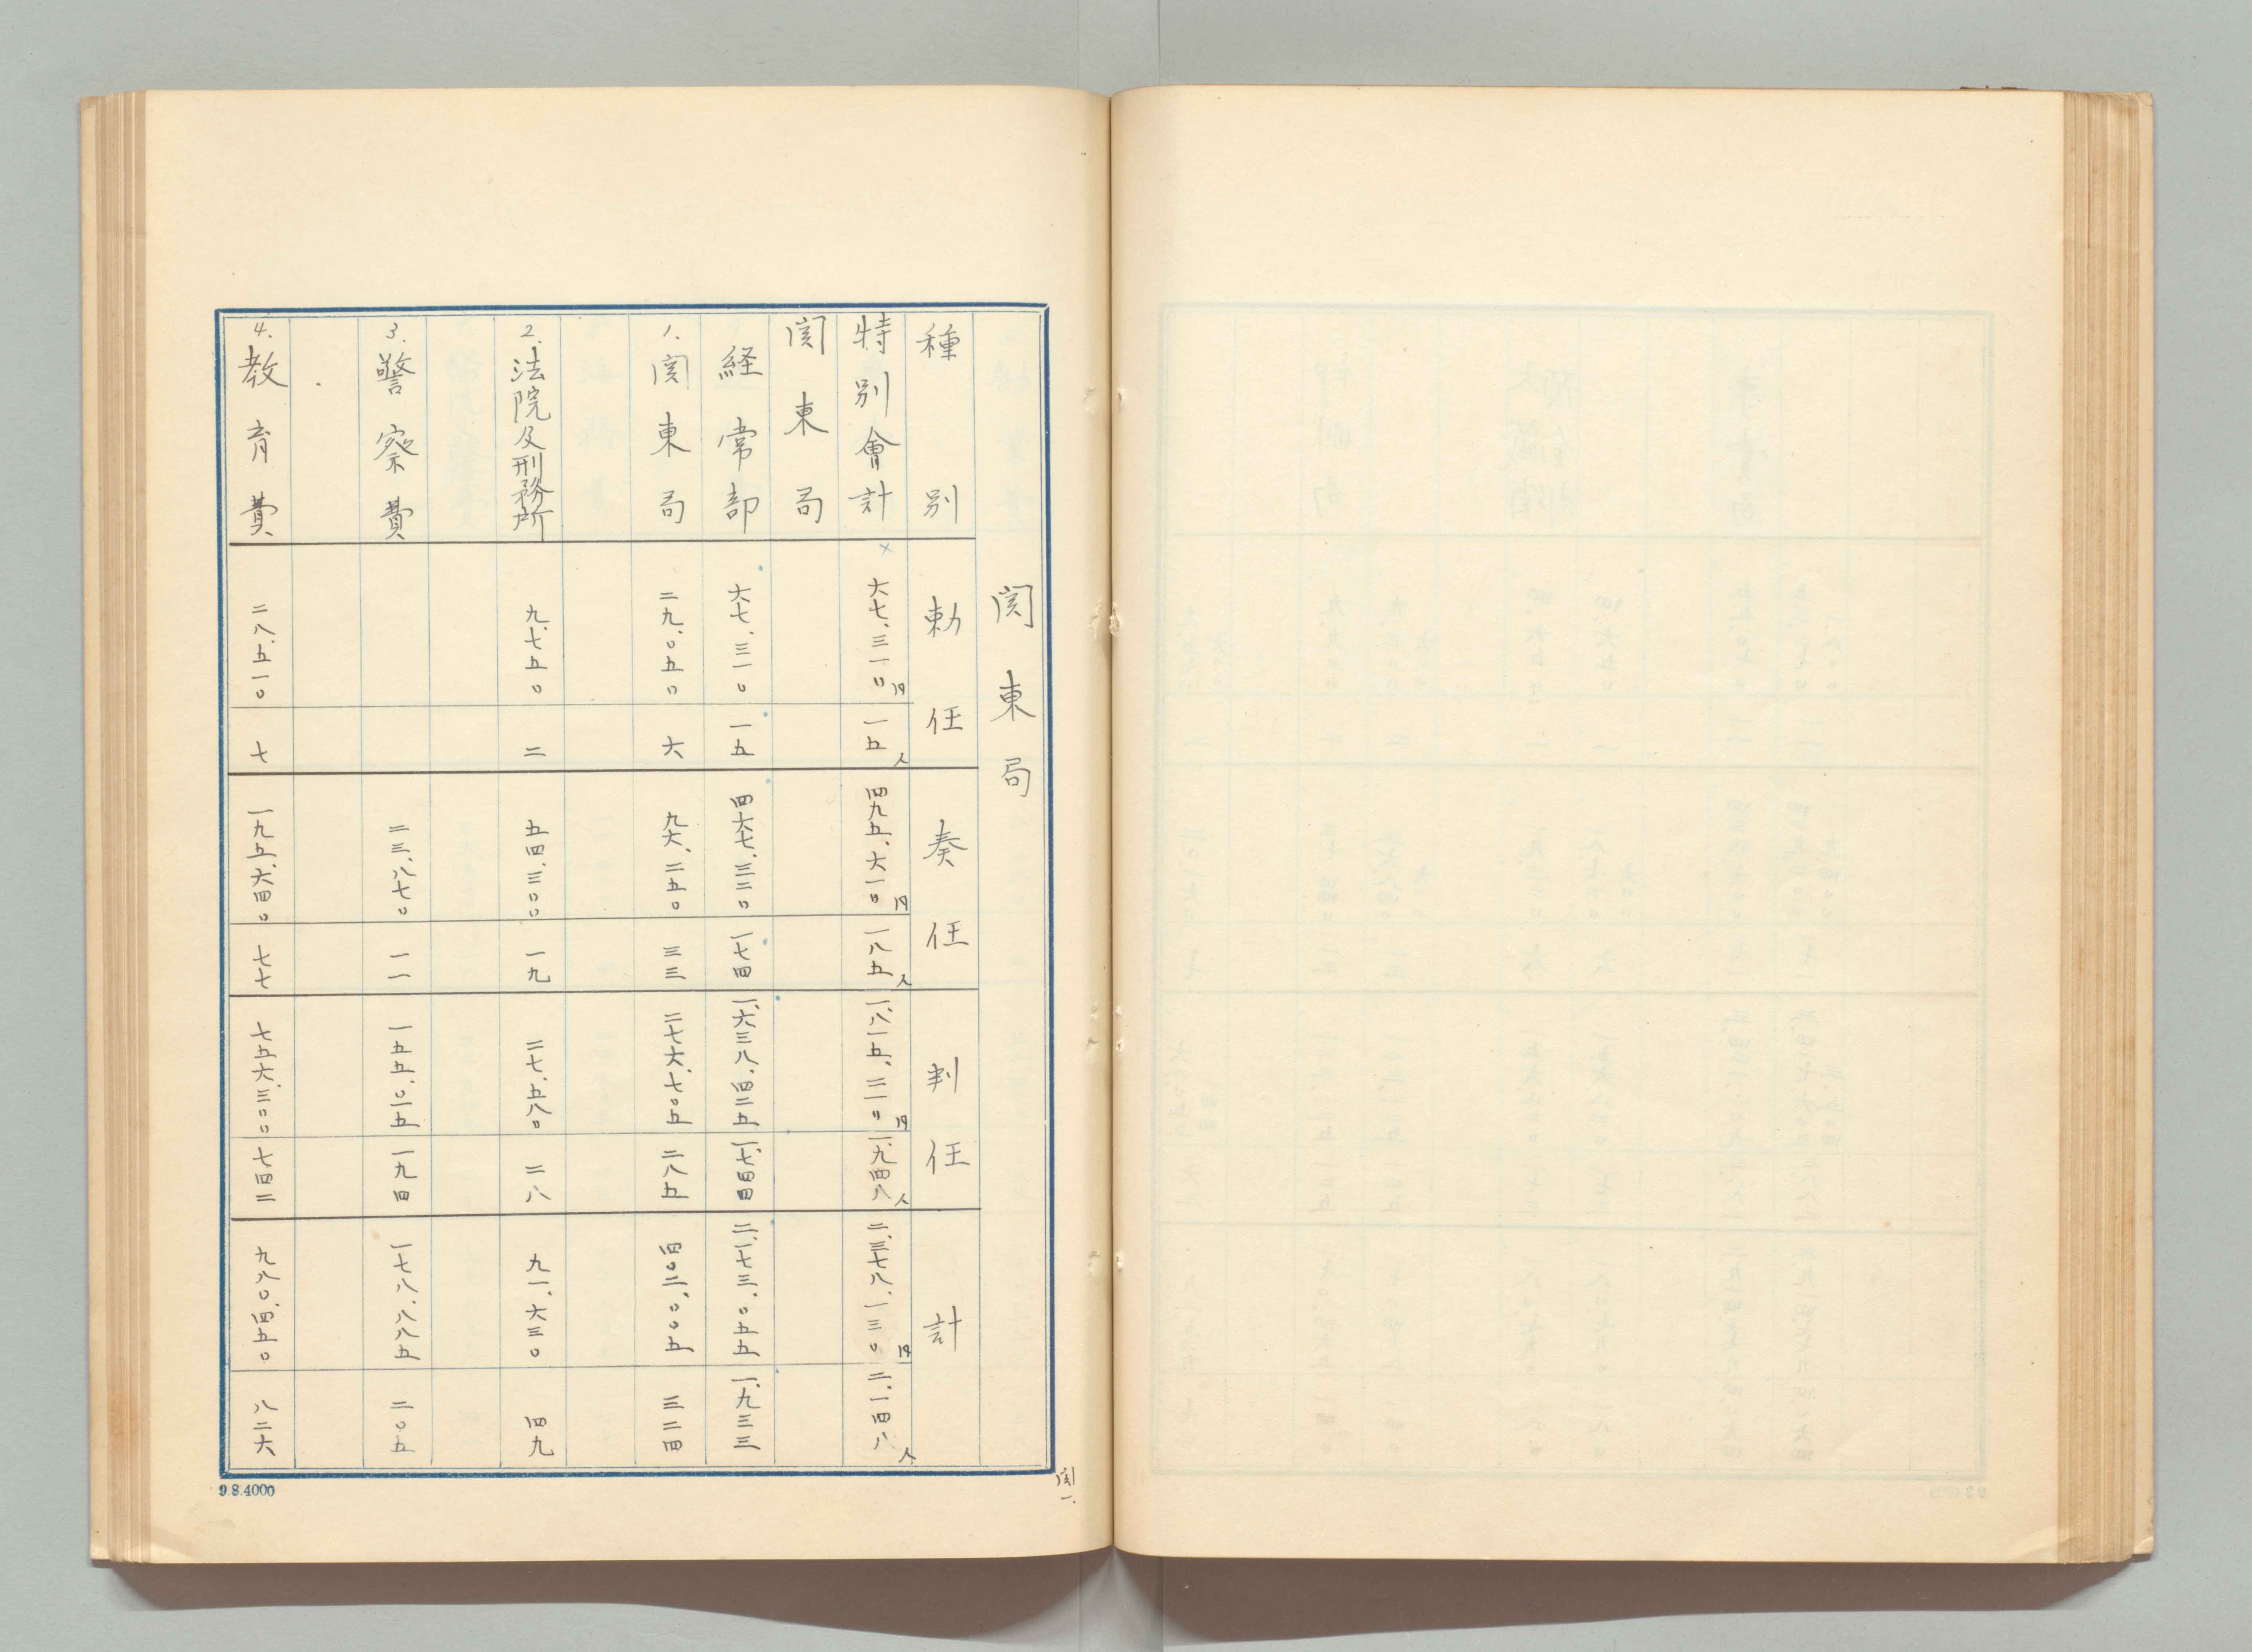 関東局
種別 勅任 奏任 判任 計
特別會計 六七、三一〇円 一五人 四九五、六一〇円 一八五人 一、八一五、二一〇円 一、九四八人 二、三七八、一三〇円 二、一四八人
関東局
経常部 六七、三一〇 一五 四六七、三二〇 一七四 一、六三八、四二五 一、七四四 二、一七三、〇五五 一、九三三
1. 関東局 二九、〇五〇 六 九六、二五〇 三三 二七六、七〇五 二八五 四〇二、〇〇五 三二四
2. 法院及刑務所 九、七五〇 二 五四、三〇〇 一九 二七、五八〇 二八 九一、六三〇 四九
3. 警察費 二三、八七〇 一一 一五五、〇一五 一九四 一七八、八八五 二〇五
4. 教育費 二八、五一〇 七 一九五、六四〇 七七 七五六、三〇〇 七四二 九八〇、四五〇 八二六
関一.
9.8.4000